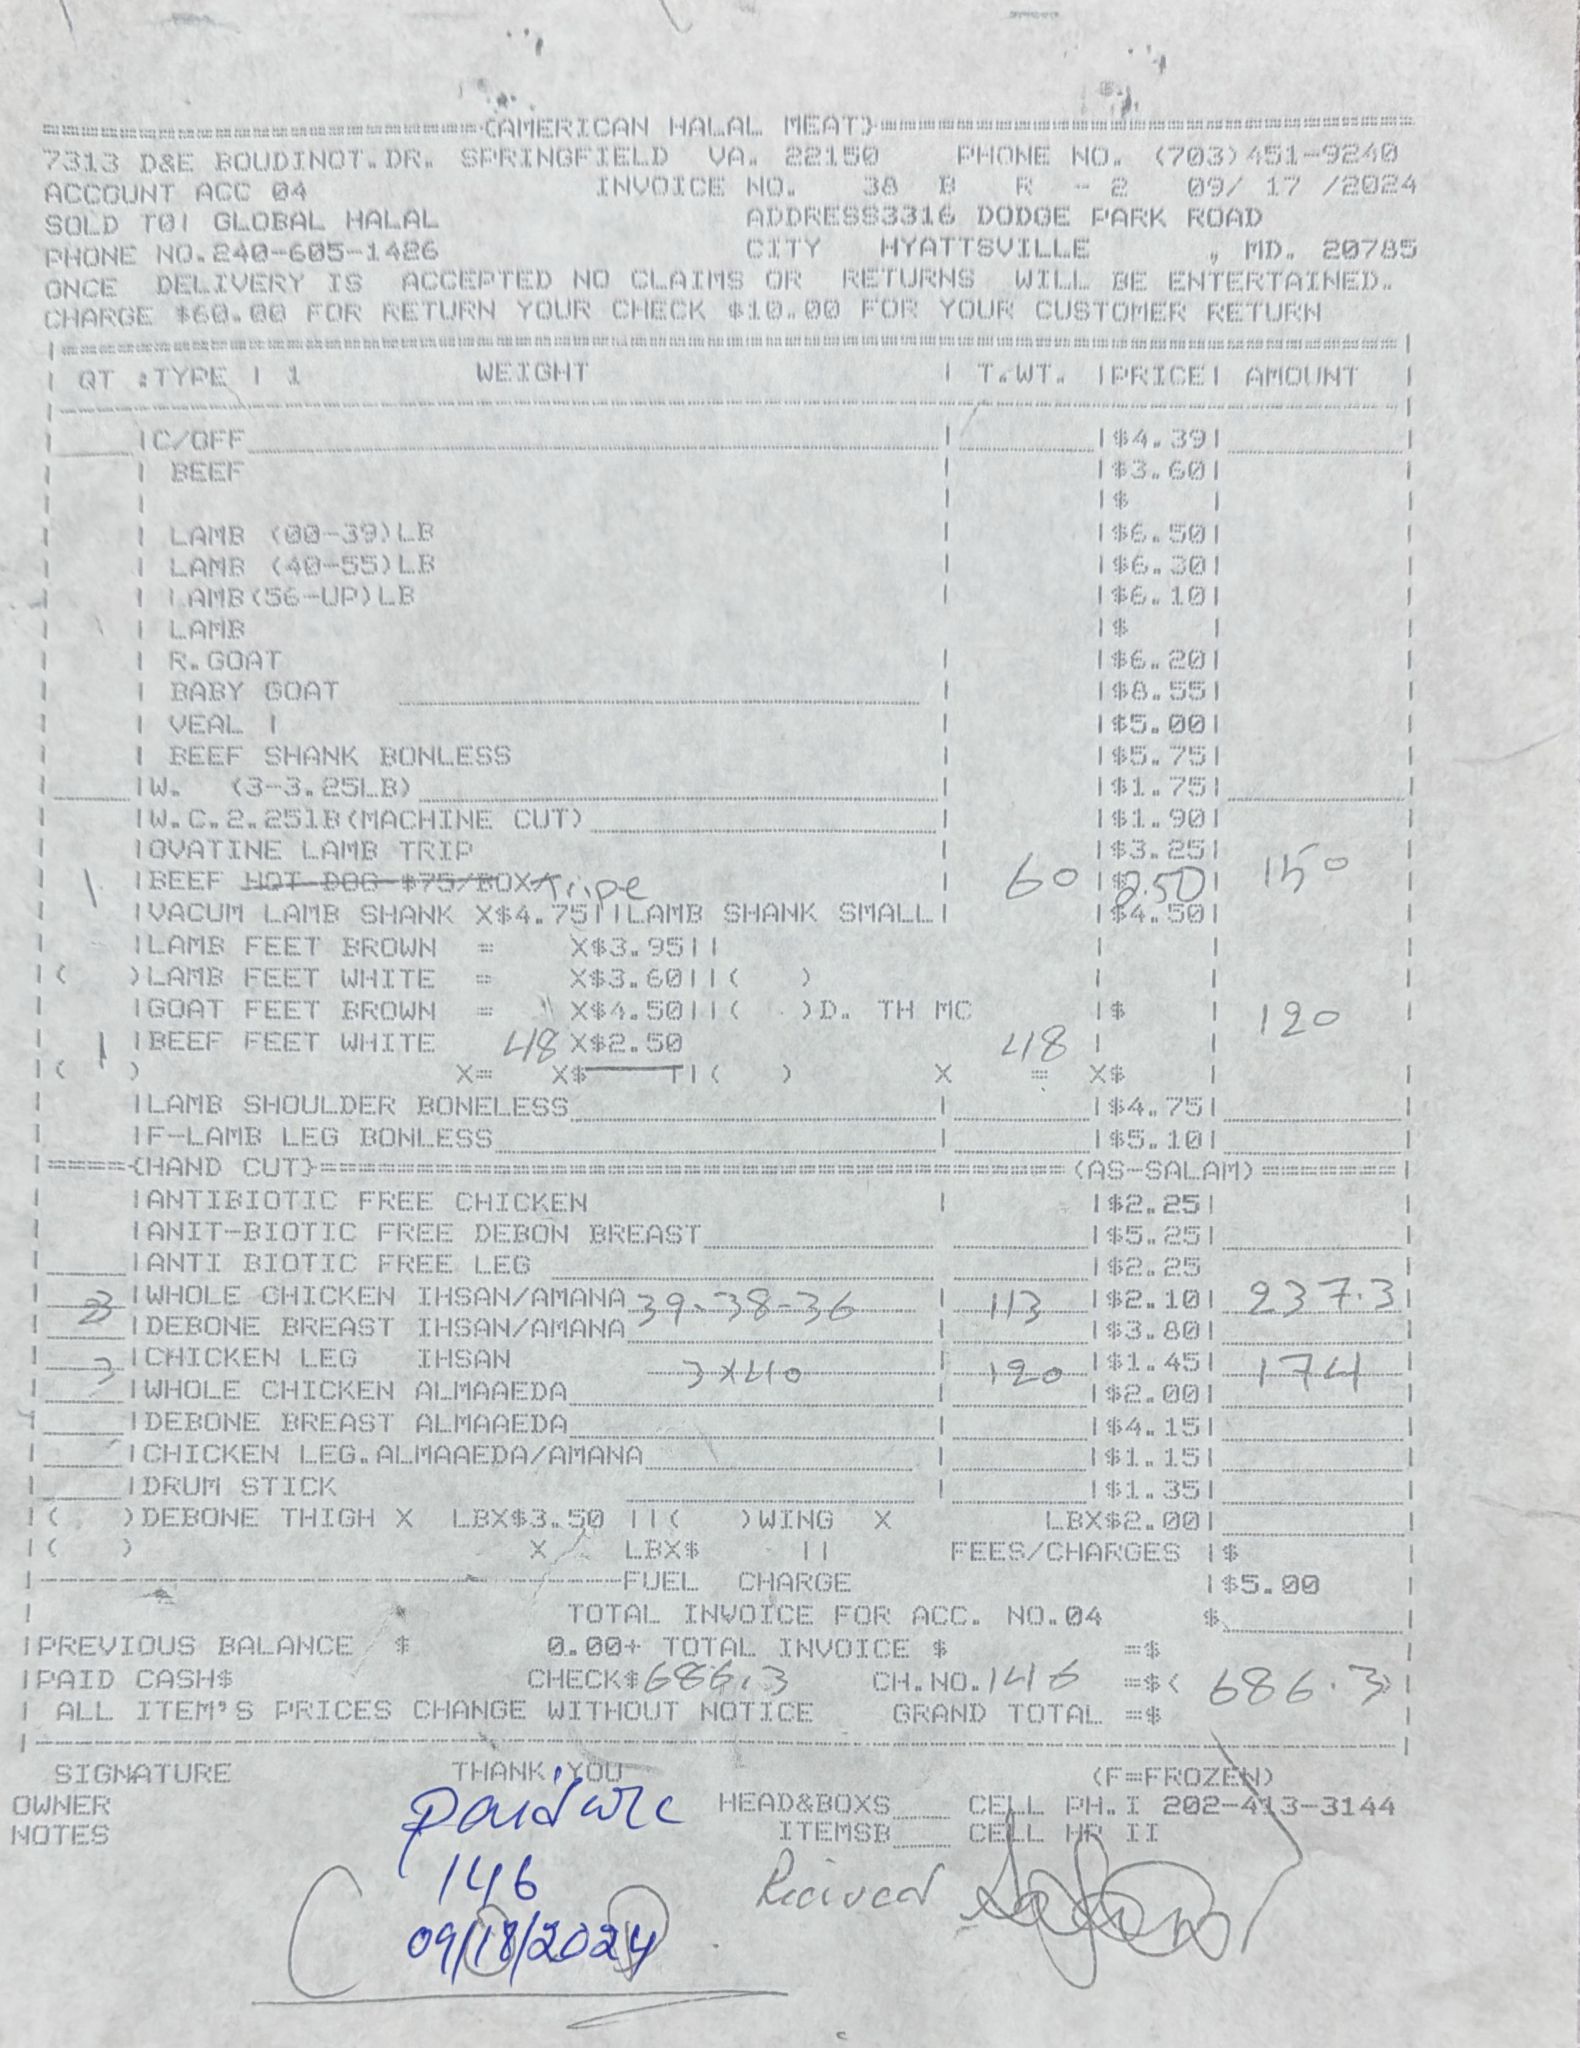 (AMERICAN HALAL MEAT)
7313 D&E BOUDINOT.DR. SPRINGFIELD VA. 22150 PHONE NO. (703)451-9240
ACCOUNT ACC 04 INVOICE NO. 38 B R - 2 09/ 17 /2024
SOLD TO! GLOBAL HALAL ADDRESS3316 DODGE PARK ROAD
PHONE NO.240-605-1426 CITY HYATTSVILLE , MD. 20785
ONCE DELIVERY IS ACCEPTED NO CLAIMS OR RETURNS WILL BE ENTERTAINED.
CHARGE $60.00 FOR RETURN YOUR CHECK $10.00 FOR YOUR CUSTOMER RETURN
QT :TYPE | 1 WEIGHT | T.WT. |PRICE| AMOUNT
|C/OFF | |$4.39|
| BEEF | |$3.60|
| | |$ |
| LAMB (00-39)LB | |$6.50|
| LAMB (40-55)LB | |$6.30|
| LAMB(56-UP)LB | |$6.10|
| LAMB |$ |
| R.GOAT | |$6.20|
| BABY GOAT | |$8.55|
| VEAL | | |$5.00|
| BEEF SHANK BONLESS |$5.75|
|W. (3-3.25LB) | |$1.75|
|W.C.2.25lB(MACHINE CUT) | |$1.90|
|OVATINE LAMB TRIP | |$3.25|
1 |BEEF HOT DOG $75/BOX Tripe 60 |$ 2.50 150
|VACUM LAMB SHANK X$4.75||LAMB SHANK SMALL| |$4.50|
|LAMB FEET BROWN = X$3.95||
|( )LAMB FEET WHITE = X$3.60||( )
|GOAT FEET BROWN = X$4.50||( )D. TH MC |$ |
1 |BEEF FEET WHITE 48 X$2.50 48 | | 120
|( ) X= X$ ||( ) X = X$ |
|LAMB SHOULDER BONELESS | |$4.75|
|F-LAMB LEG BONLESS | |$5.10|
|====(HAND CUT)====(AS-SALAM)====|
|ANTIBIOTIC FREE CHICKEN | |$2.25|
|ANIT-BIOTIC FREE DEBON BREAST |$5.25|
|ANTI BIOTIC FREE LEG |$2.25
3 |WHOLE CHICKEN IHSAN/AMANA 39-38-36 113 |$2.10| 237.3
|DEBONE BREAST IHSAN/AMANA |$3.80|
3 |CHICKEN LEG IHSAN 3x40 | 120 |$1.45| 174
|WHOLE CHICKEN ALMAAEDA | |$2.00|
|DEBONE BREAST ALMAAEDA | |$4.15|
|CHICKEN LEG.ALMAAEDA/AMANA | |$1.15|
|DRUM STICK | |$1.35|
|( )DEBONE THIGH X LBX$3.50 ||( )WING X LBX$2.00|
|( ) X LBX$ || FEES/CHARGES |$
FUEL CHARGE |$5.00
TOTAL INVOICE FOR ACC. NO.04 $
|PREVIOUS BALANCE $ 0.00+ TOTAL INVOICE $ =$
|PAID CASH$ CHECK$ 686.3 CH.NO. 146 =$( 686.3)
| ALL ITEM'S PRICES CHANGE WITHOUT NOTICE GRAND TOTAL =$
SIGNATURE THANK YOU (F=FROZEN)
OWNER HEAD&BOXS CELL PH.I 202-413-3144
NOTES ITEMSB CELL HR II
paid
146
09/18/2024
Recived